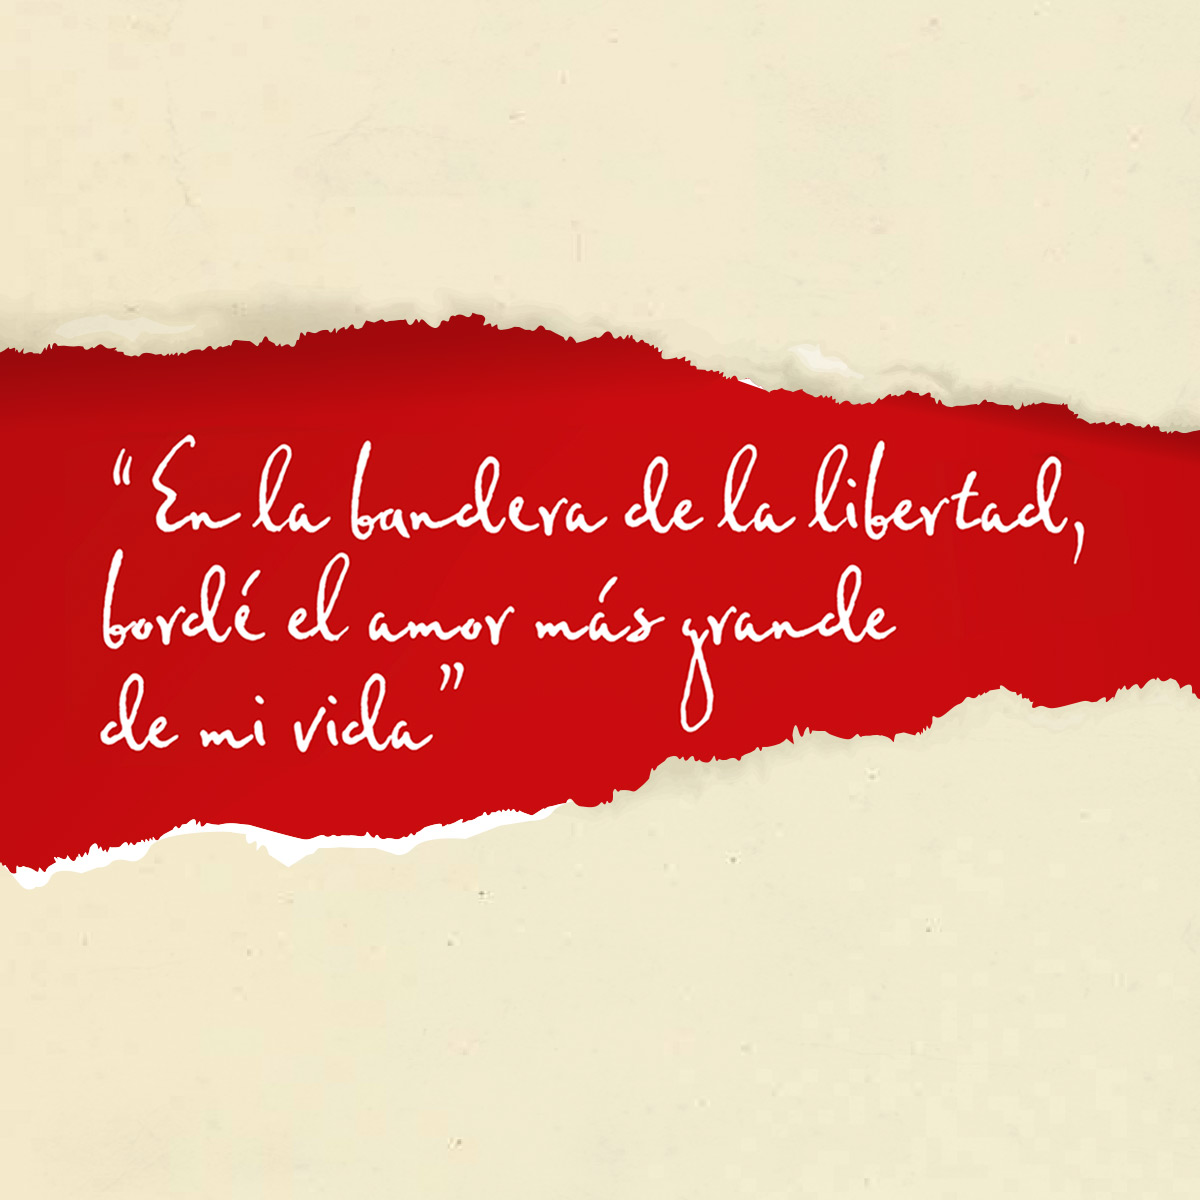 “En la bandera de la libertad,
bordé el amor más grande
de mi vida”